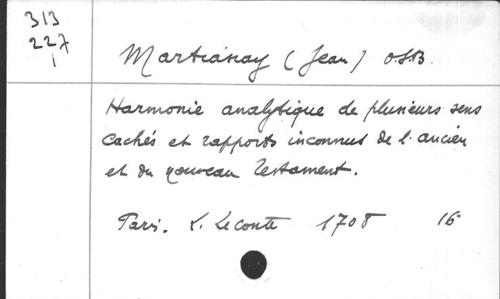 313
227
1
Martianay (Jean) O.S.B.
Harmonie analytique de plusieurs sens
cachés et rapports inconnus de l'ancien
et du nouveau Testament.
Paris. L. Leconte 1708 16